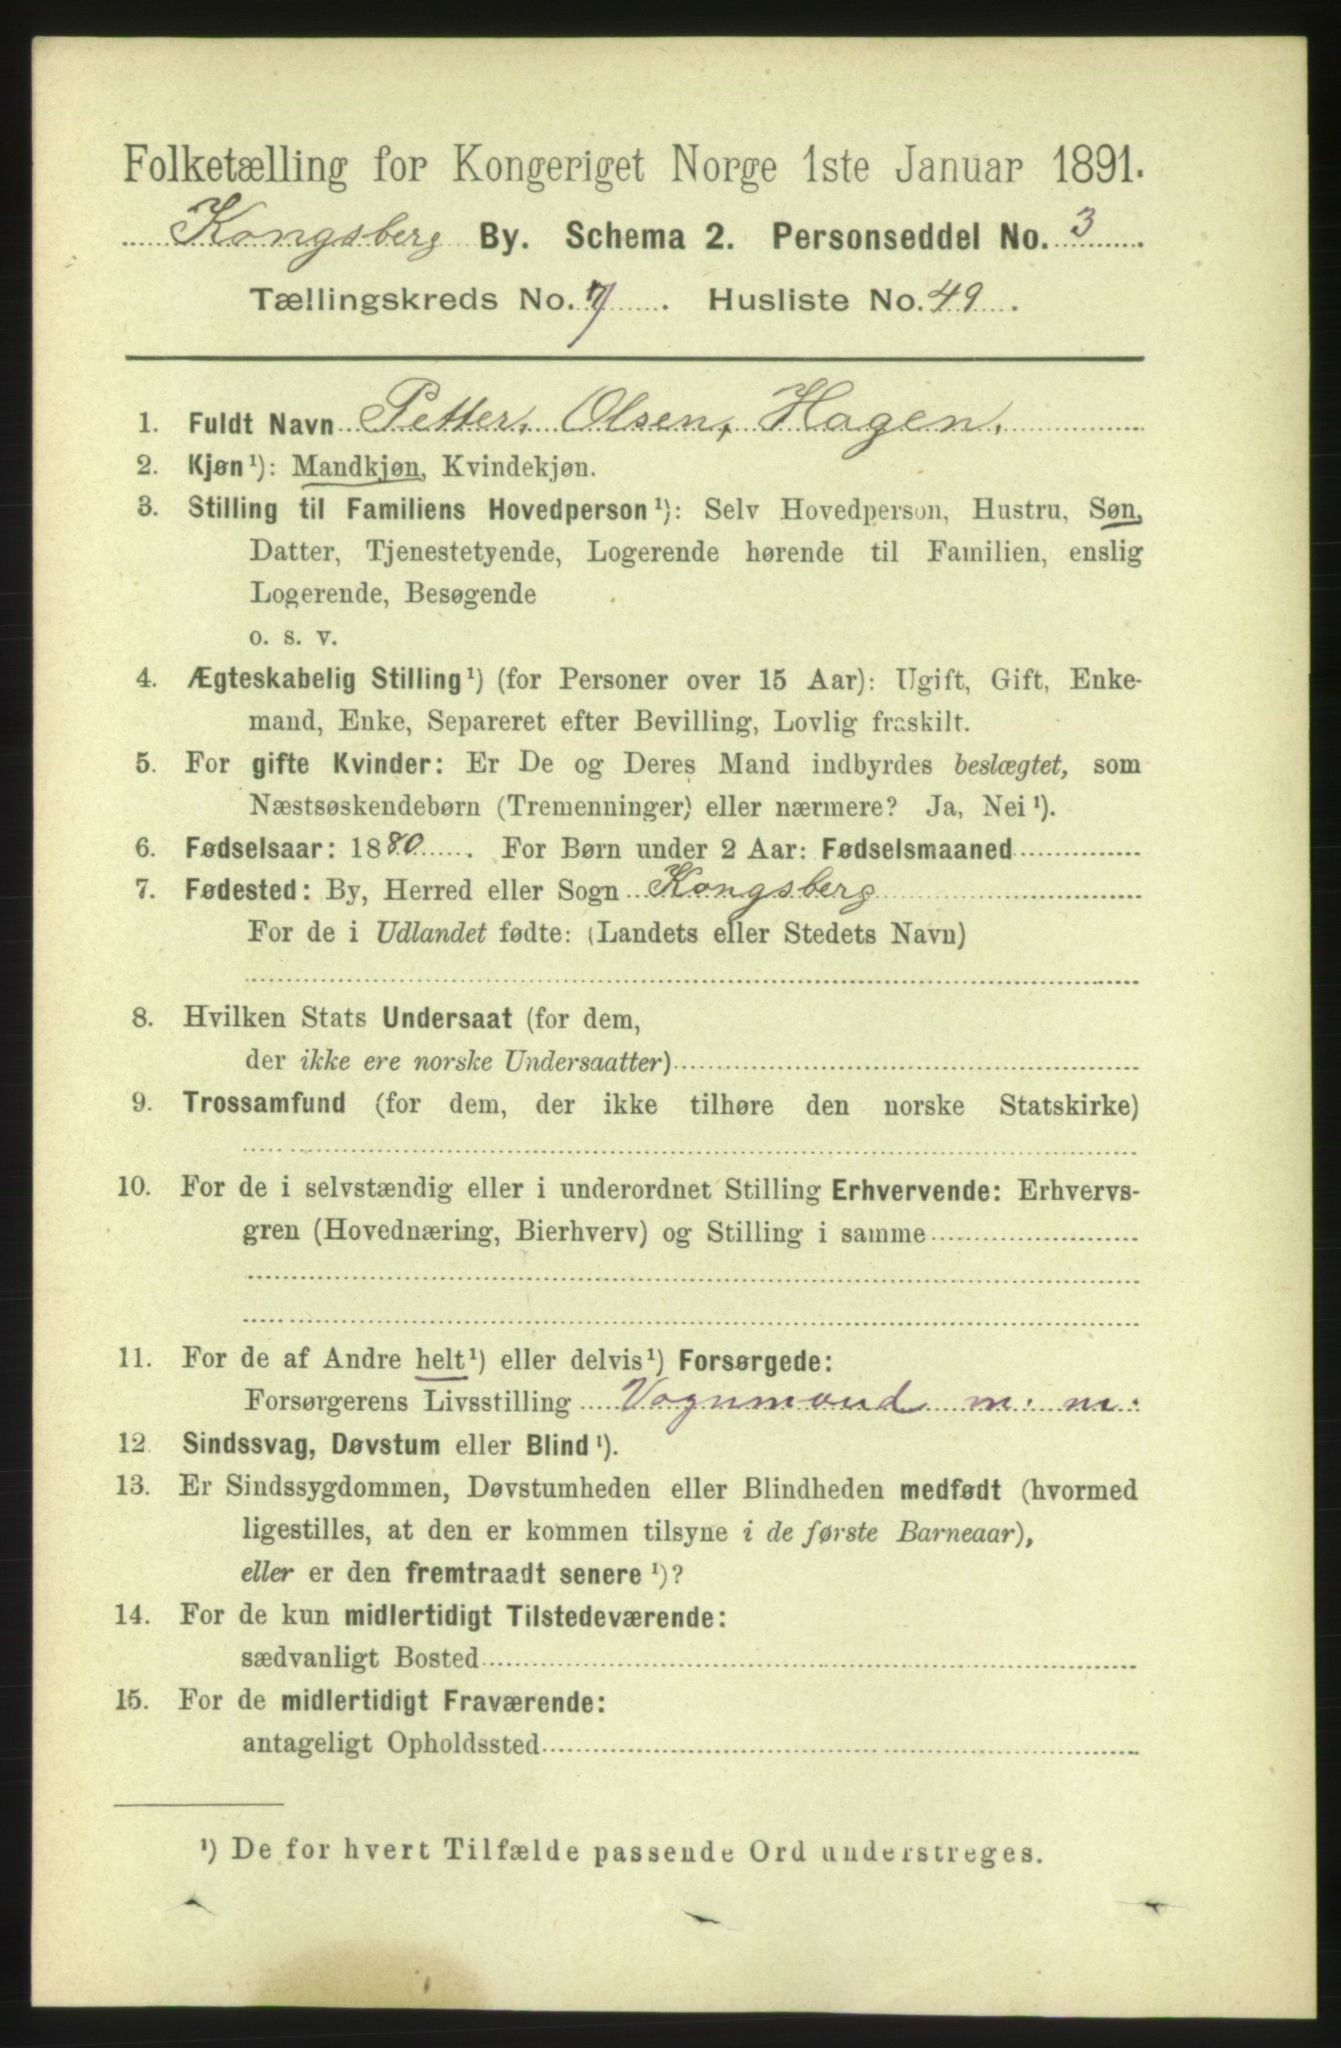 Folketælling for Kongeriget Norge 1ste Januar 1891.
Kongsberg By. Schema 2. Personseddel No. 3
Tællingskreds No. 7. Husliste No. 49.
1. Fuldt Navn Petter, Olsen, Hagen,
2. Kjøn¹): Mandkjøn, Kvindekjøn.
3. Stilling til Familiens Hovedperson¹): Selv Hovedperson, Hustru, Søn,
Datter, Tjenestetyende, Logerende hørende til Familien, enslig
Logerende, Besøgende
o. s. v.
4. Ægteskabelig Stilling¹) (for Personer over 15 Aar): Ugift, Gift, Enke-
mand, Enke, Separeret efter Bevilling, Lovlig fraskilt.
5. For gifte Kvinder: Er De og Deres Mand indbyrdes beslægtet, som
Næstsøskendebørn (Tremenninger) eller nærmere? Ja, Nei¹).
6. Fødselsaar: 1880. For Børn under 2 Aar: Fødselsmaaned
7. Fødested: By, Herred eller Sogn Kongsberg
For de i Udlandet fødte: (Landets eller Stedets Navn)
8. Hvilken Stats Undersaat (for dem,
der ikke ere norske Undersaatter)
9. Trossamfund (for dem, der ikke tilhøre den norske Statskirke)
10. For de i selvstændig eller i underordnet Stilling Erhvervende: Erhvervs-
gren (Hovednæring, Bierhverv) og Stilling i samme
11. For de af Andre helt¹) eller delvis¹) Forsørgede:
Forsørgerens Livsstilling Vognmand m. m.
12. Sindssvag, Døvstum eller Blind¹).
13. Er Sindssygdommen, Døvstumheden eller Blindheden medfødt (hvormed
ligestilles, at den er kommen tilsyne i de første Barneaar),
eller er den fremtraadt senere¹)?
14. For de kun midlertidigt Tilstedeværende:
sædvanligt Bosted
15. For de midlertidigt Fraværende:
antageligt Opholdssted
¹) De for hvert Tilfælde passende Ord understreges.